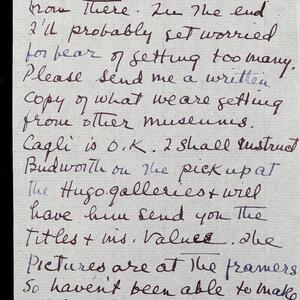 from there. In the end
I'll probably get worried
for fear of getting too many.
Please send me a written
copy of what we are getting
from other museums.
Cagli is O.K. I shall instruct
Budworth on the pick up at
the Hugo galleries & will
have him send you the
titles & ins. values. The
pictures are at the framers
so haven't been able to make